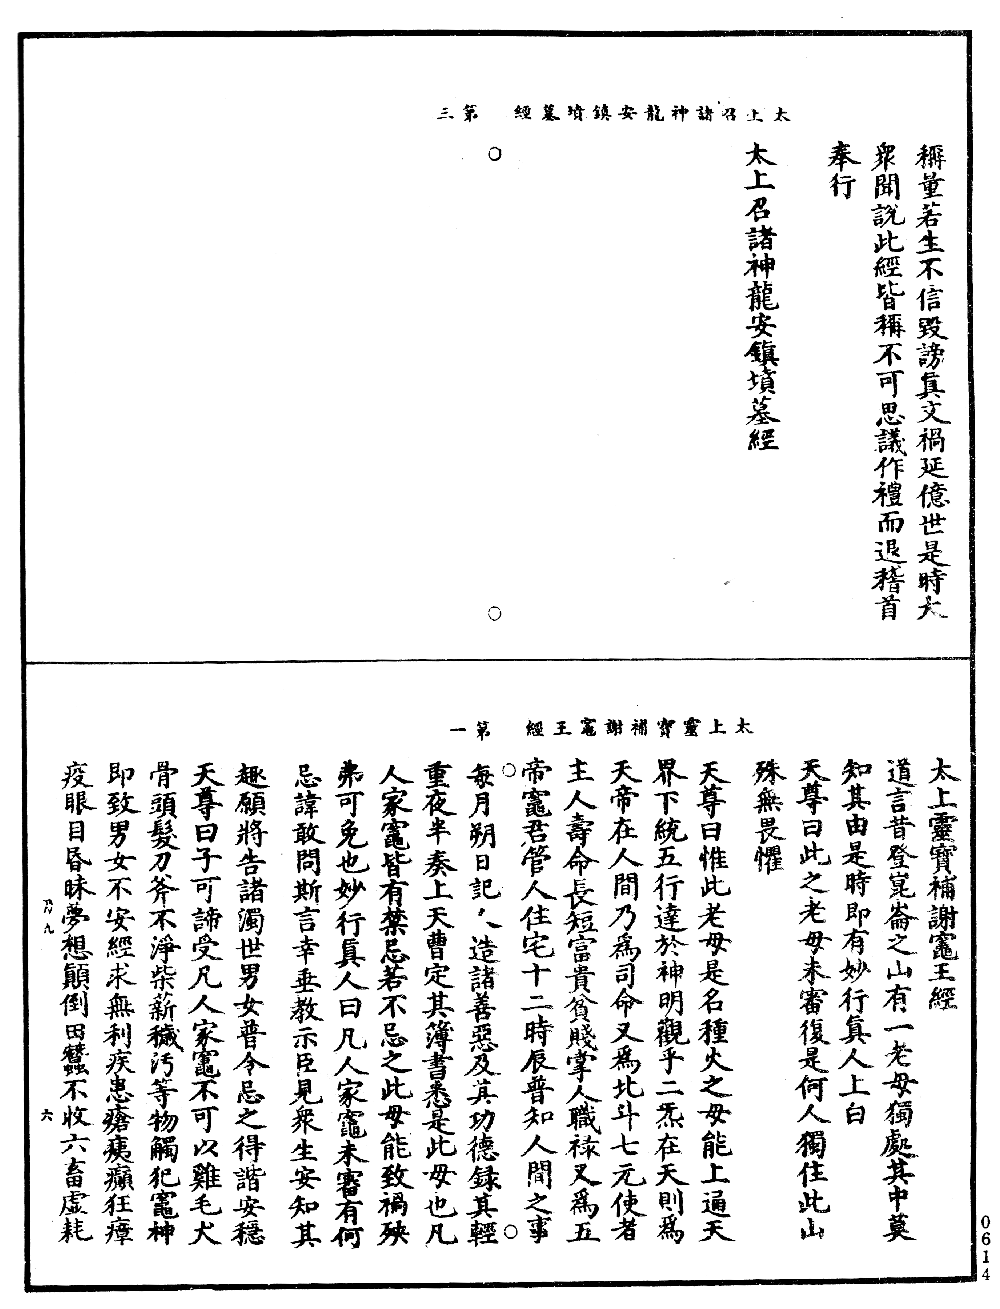 太上召諸神龍安鎮墳墓經　第三
稱量若生不信毀謗眞文禍延億世是時大
衆聞說此經皆稱不可思議作禮而退稽首
奉行
太上召諸神龍安鎮墳墓經
太上靈寶補謝竈王經　第一
太上靈寶補謝竈王經
道言昔登崑崙之山有一老母獨處其中莫
知其由是時即有妙行眞人上白
天尊曰此之老母未審復是何人獨住此山
殊無畏懼
天尊曰惟此老母是名種火之母能上通天
界下統五行達於神明觀乎二炁在天則爲
天帝在人間乃爲司命又爲北斗七元使者
主人壽命長短富貴貧賤掌人職祿又爲五
帝竈君管人住宅十二時辰普知人間之事
每月朔日記人造諸善惡及其功德録其輕
重夜半奏上天曹定其簿書悉是此母也凡
人家竈皆有禁忌若不忌之此母能致禍殃
弗可免也妙行眞人曰凡人家竈未審有何
忌諱敢問斯言幸垂教示臣見衆生安知其
趣願將告諸濁世男女普令忌之得諧安穩
天尊曰子可諦受凡人家竈不可以雞毛犬
骨頭髮刀斧不淨柴薪穢污等物觸犯竈神
即致男女不安經求無利疾患瘡痍癲狂瘴
疫眼目昏昧夢想顛倒田蠶不收六畜虛耗
六
0614